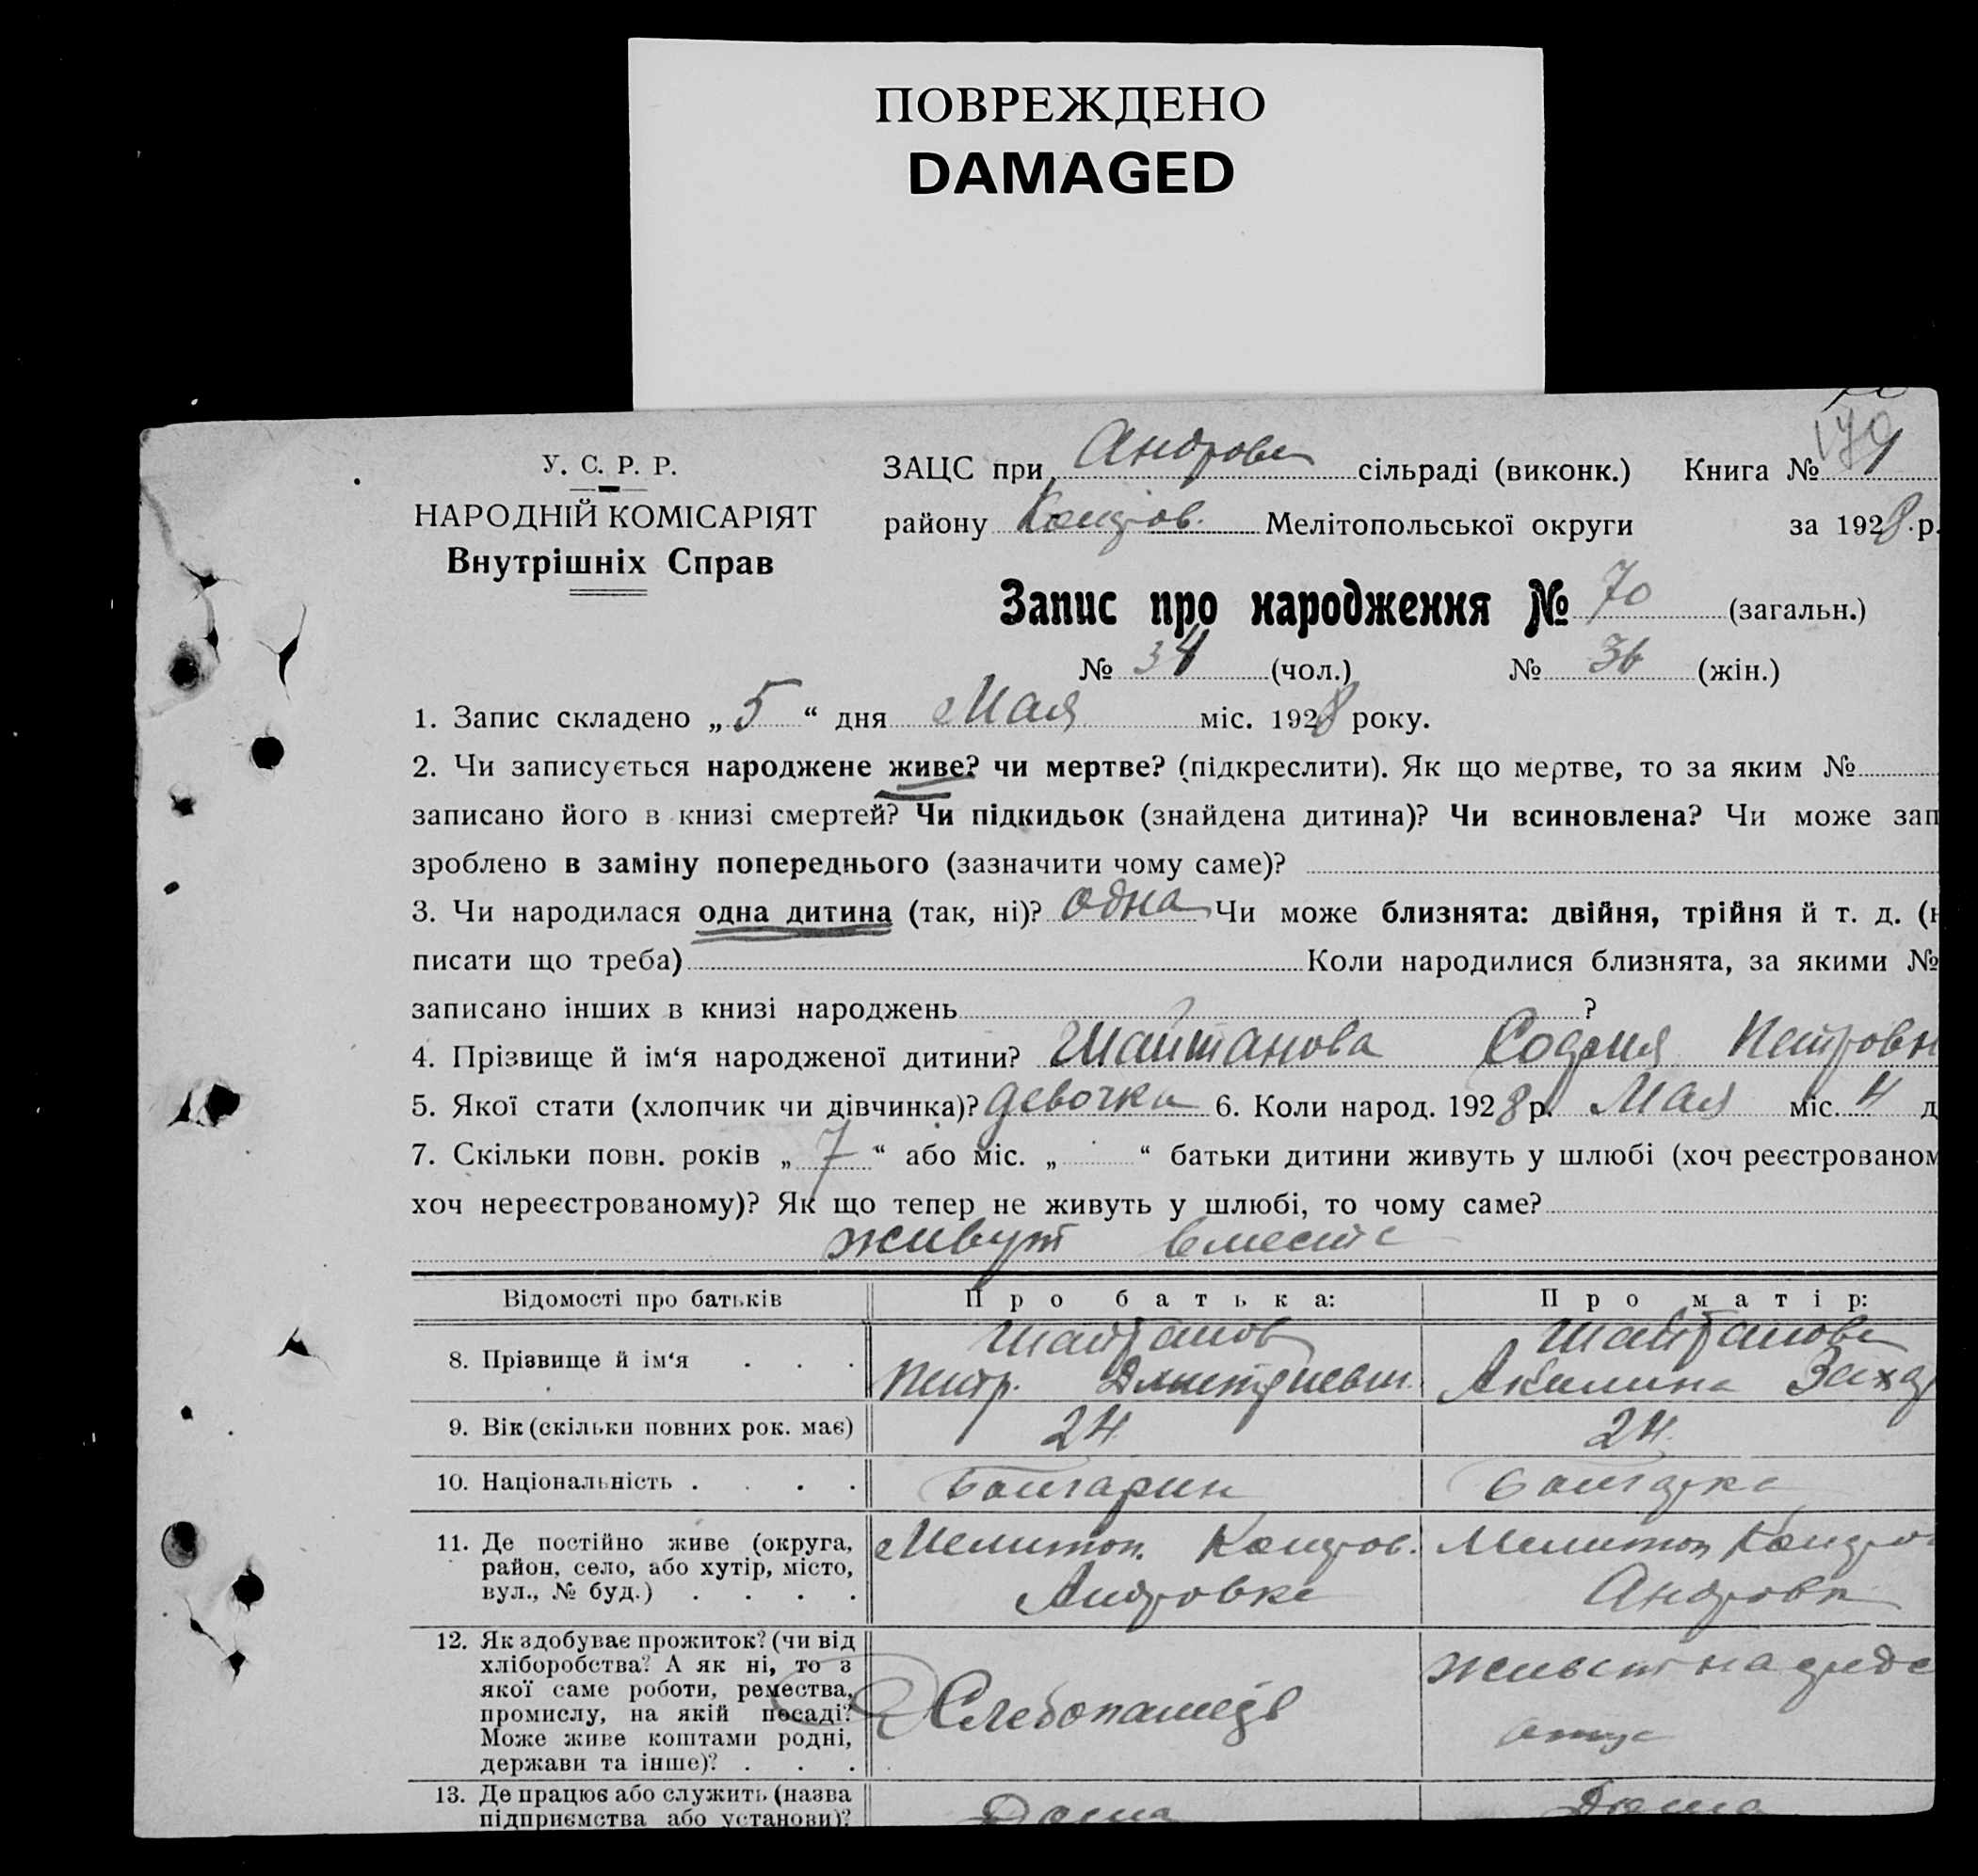 ПОВРЕЖДЕНО
DAMAGED
У. С. Р. Р.
НАРОДНІЙ КОМІСАРІЯТ
Внутрішніх Справ
ЗАЦС при Андровск сільраді (виконк.) Книга №
району Колуров. Мелітопольської округи за 1928 р.
Запис про народження № 70 (загальн.)
№ 34 (чол.) № 36 (жін.)
1. Запис складено „ 5 “ дня Мая міс. 1928 року.
2. Чи записується народжене живе? чи мертве? (підкреслити). Як що мертве, то за яким №
записано його в книзі смертей? Чи підкидьок (знайдена дитина)? Чи всиновлена? Чи може зап
зроблено в заміну попереднього (зазначити чому саме)?
3. Чи народилася одна дитина (так, ні)? одна Чи може близнята: двійня, трійня й т. д. (н
писати що треба) Коли народилися близнята, за якими №
записано інших в книзі народжень ?
4. Прізвище й ім‘я народженої дитини? Шайтанова София Петровн
5. Якої стати (хлопчик чи дівчинка)? девочка 6. Коли народ. 1928 р. Мая міс. 4 д
7. Скільки повн. років „ 7 “ або міс. „ “ батьки дитини живуть у шлюбі (хоч реєстрованом
хоч нереєстрованому)? Як що тепер не живуть у шлюбі, то чому саме?
живут вместе
Відомості про батьків Про батька: Про матір:
8. Прізвище й ім‘я . . . Шайтанов Петр. Дмитриевич. Шайтанова Акилина Захар
9. Вік (скільки повних рок. має) 24. 24.
10. Національність . . . . Болгарин болгарка
11. Де постійно живе (округа,
район, село, або хутір, місто,
вул., № буд.) . . . .
Мелитоп. Андровка Мелитоп
12. Як здобуває прожиток? (чи від
хліборобства? А як ні, то з
якої саме роботи, ремества,
промислу, на якій посаді?
Може живе коштами родні,
держави та інше)? . . .
Хлебопашець
13. Де працює або служить (назва
підприємства або установи)?
Дома Дома